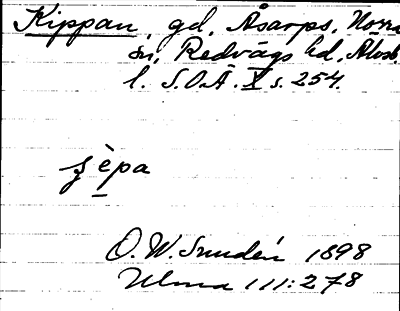 Kippan, gd, Åsarps, Norra
sn, Redvägs hd, Älvsb.
l. S.O.Ä. X s. 254.
O. W. Smedén 1898
Ulma 111:278